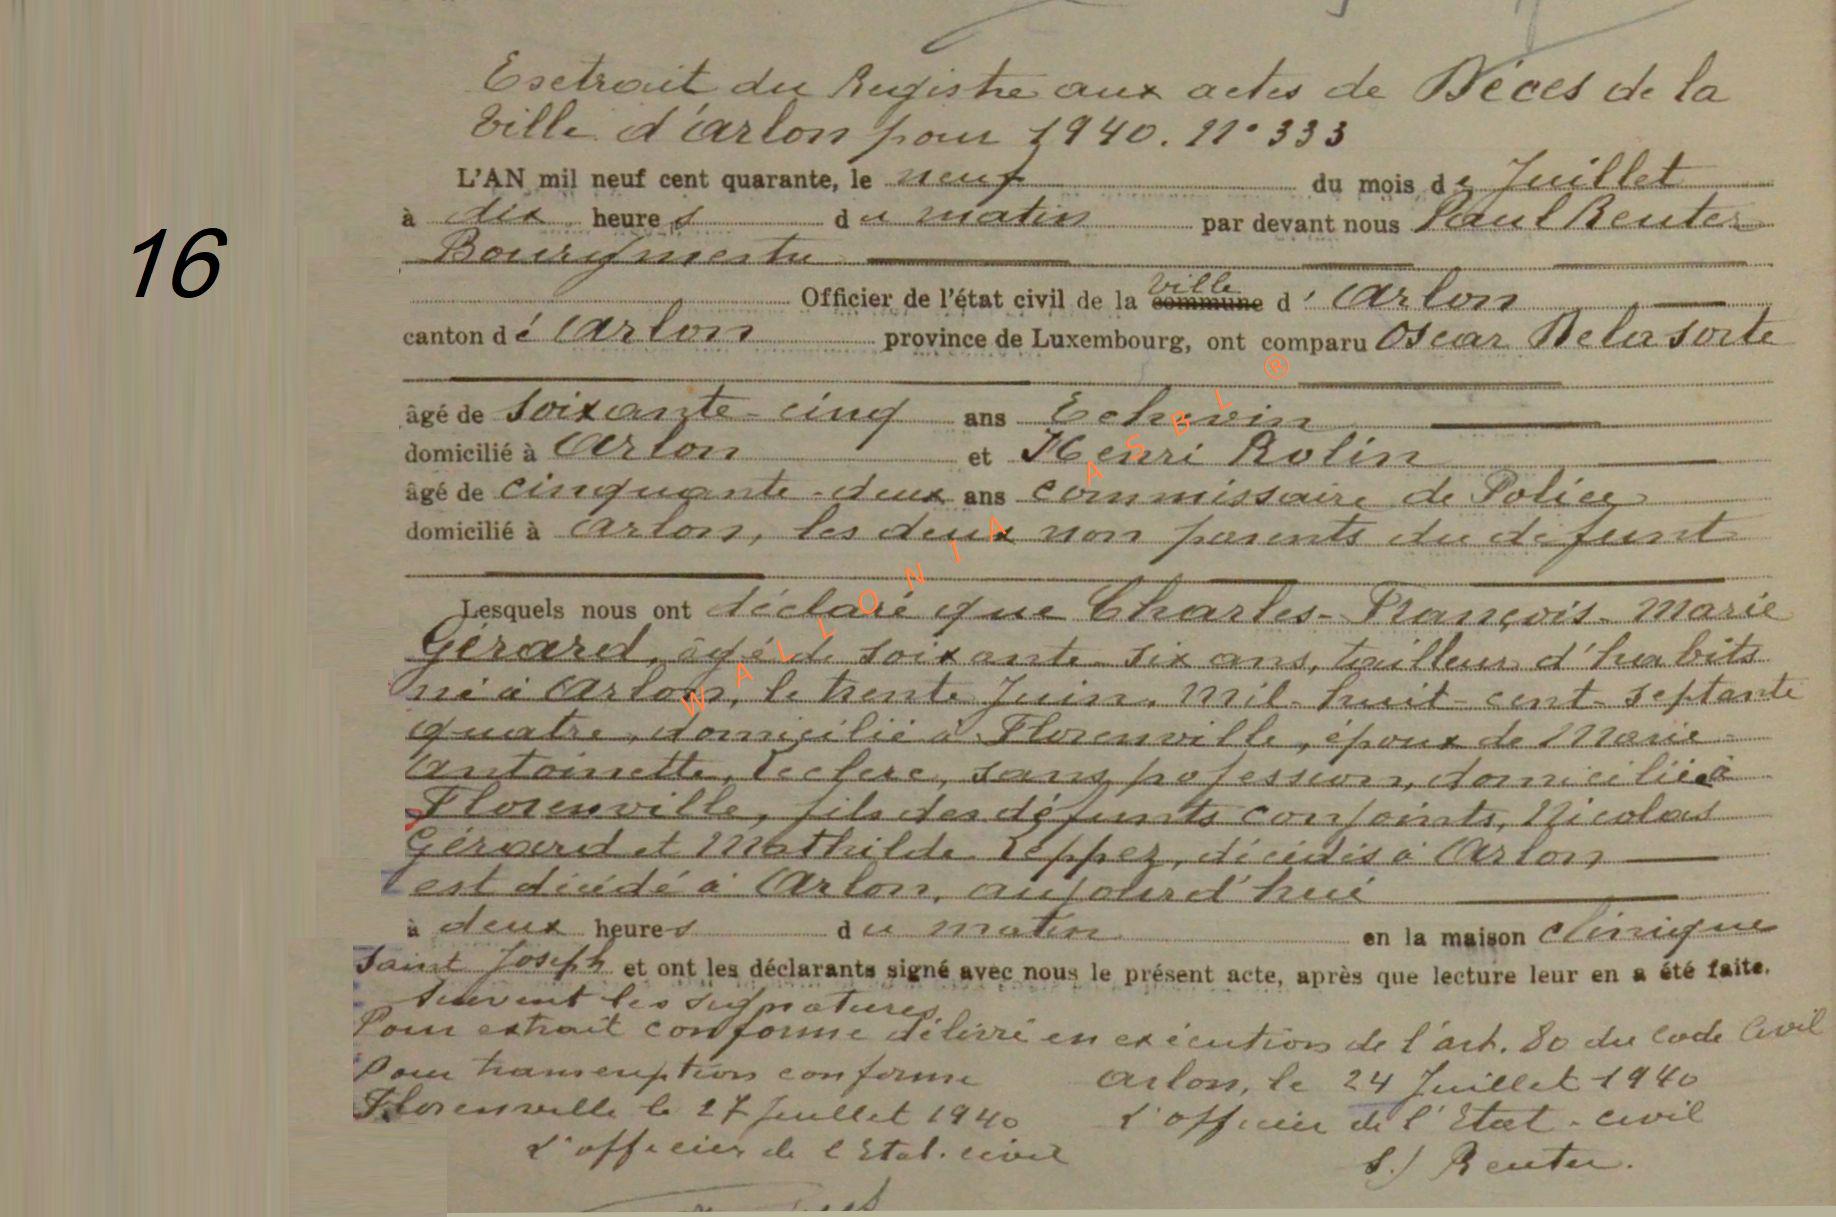 Esctrait du Registre aux actes de Décès de la
Ville d'Arlon pour 1940. N° 333
L'AN mil neuf cent quarante, le neuf du mois de Juillet
16
à dix heures du matin par devant nous Paul Reuter
Bourgmestre
Officier de l'état civil de la ville commune d'Arlon
canton d'Arlon province de Luxembourg, ont comparu Oscar Delasorte
âgé de soixante-cinq ans Echevin
domicilié à Arlon et Henri Rolin
âgé de cinquante-deux ans commissaire de Police
domicilié à Arlon, les deux non parents du défunt
Lesquels nous ont déclaré que Charles-François-Marie
Gérard, âgé de soixante-six ans, tailleur d'habits
né à Arlon, le trente Juin, Mil-huit-cent-septante
quatre, domicilié à Florenville, époux de Marie-
Antoinette, Leclere, sans pofession, domiciliée à
Florenville, fils des défunts conjoints, Nicolas
Gérard et Mathilde Reppez, décédés à Arlon,
est décédé à Arlon, aujourd'hui
à deux heures du matin en la maison clinique
Saint Joseph et ont les déclarants signé avec nous le présent acte, après que lecture leur en a été faite.
Suivent les signatures
Pour extrait conforme délivré en exécution de l'art. 80 du Code Civil
Pour transcription conforme Arlon, le 24 Juillet 1940
Florenville le 27 Juillet 1940 L'officier de l'Etat-civil
L'officier de l'Etat.civil S.) Reuter.
WALLONIA ASBL ®